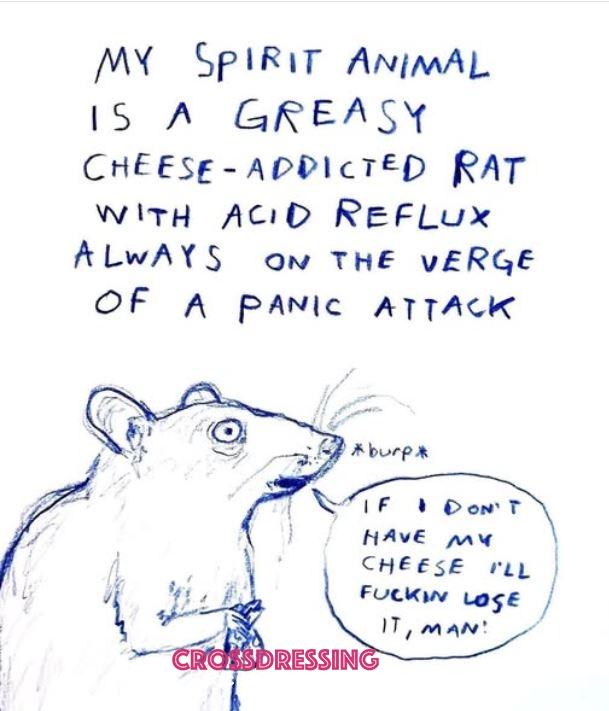 MY SPIRIT ANIMAL
IS A GREASY
CHEESE-ADDICTED RAT
WITH ACID REFLUX
ALWAYS ON THE VERGE
OF A PANIC ATTACK
*burp*
IF I DON'T
HAVE MY
CHEESE I'LL
FUCKIN LOSE
IT, MAN!
CROSSDRESSING